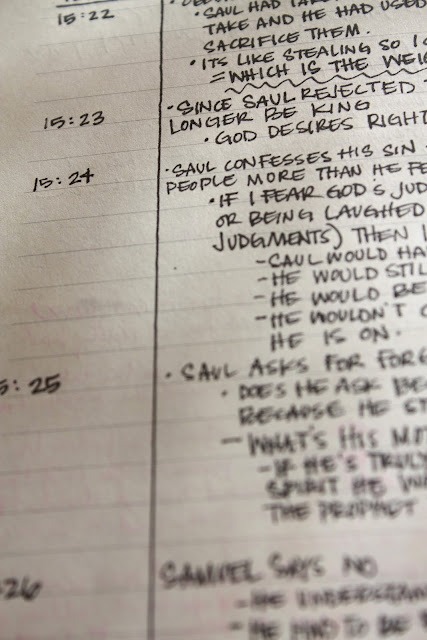 15:22
· SAUL HAD
TAKE AND HE HAD USED
SACRIFICE THEM.
· ITS LIKE STEALING SO I
= WHICH IS THE
15:23
· SINCE SAUL REJECTED
LONGER BE KING
· GOD DESIRES RIGHT
15:24
· SAUL CONFESSES HIS SIN
PEOPLE MORE THAN HE FE
· IF I FEAR GOD'S JUD
OR BEING LAUGHED
JUDGMENTS) THEN I
- CAUL WOULD HA
- HE WOULD STIL
- HE WOULD BE
- HE WOULDN'T
HE IS ON.
5:25
· SAUL ASKS FOR FORG
· DOES HE ASK BE
BECAUSE HE ST
- WHAT'S HIS MOT
- IF HE'S TRULY
SPIRIT HE W
THE PROPHET
:26
SAMUEL SAYS NO
- HE UNDERSTAN
- HE HAD TO BE